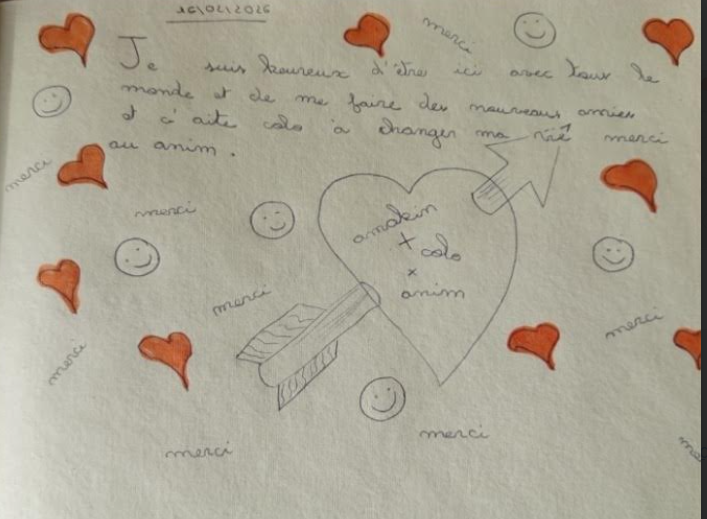 16/02/2026
merci
Je suis heureux d'être ici avec tous le
monde et de me faire des nouveaus amies
et c'aite colo à changer ma vie merci
au anim.
merci
merci
amakin
+ colo
x
anim
merci
merci
merci
merci
merci